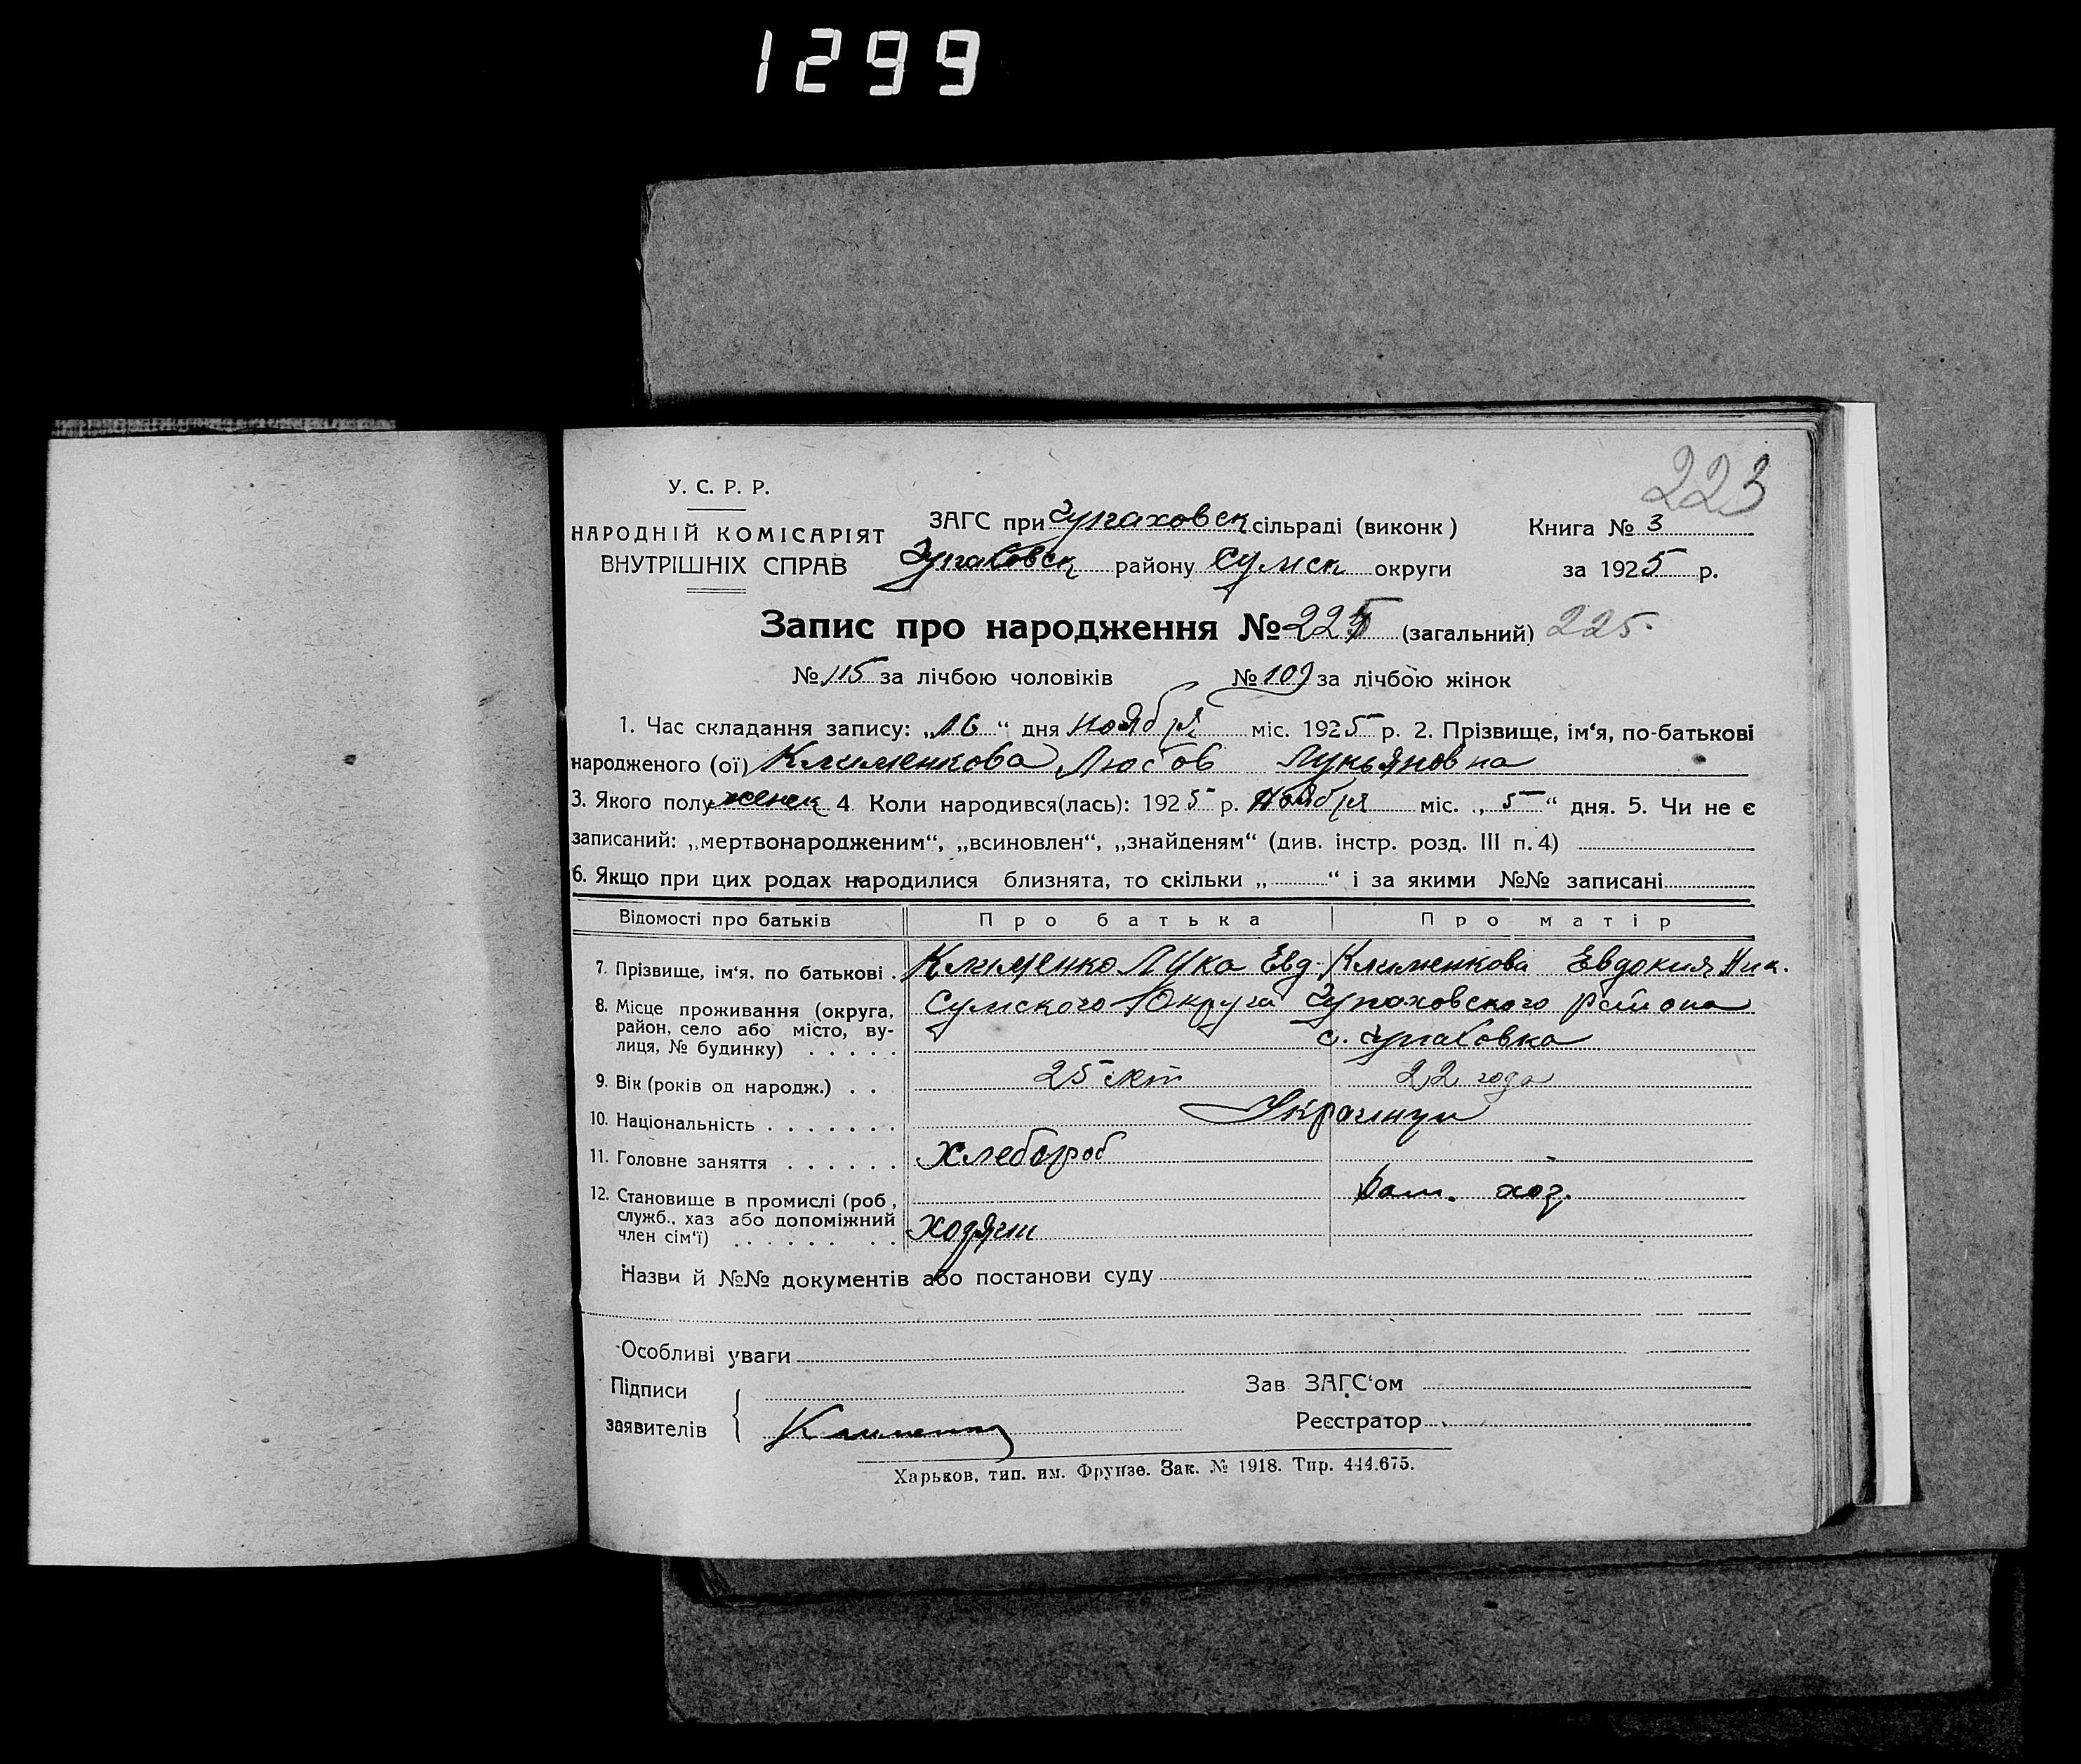 1299
223
У. С. Р. Р.
НАРОДНІЙ КОМІСАРІЯТ
ВНУТРІШНІХ СПРАВ
ЗАГС при Чупаховск сільраді (виконк)
Чупаховск району Сумск округи
Книга № 3
за 1925 р.
Запис про народження № 225 (загальний) 225
№ 115 за лічбою чоловіків № 109 за лічбою жінок
1. Час складання запису: „16“ дня Ноября міс. 1925 р. 2. Прізвище, ім‘я, по-батькові
народженого (ої) Клименкова Любов Лукьяновна
3. Якого полу женск 4. Коли народився(лась): 1925 р. Ноября міс. „5“ дня. 5. Чи не є
записаний: „мертвонародженим“, „всиновлен“, „знайденям“ (див. інстр. розд. III п. 4)
6. Якщо при цих родах народилися близнята, то скільки „ “ і за якими №№ записані
Відомості про батьків Про батька Про матір
7. Прізвище, ім‘я, по батькові . Клименко Лука Евд. Клименкова Евдокия Ник.
8. Місце проживання (округа, Сумского Округа Чупаховского района
район, село або місто, ву- с. Чупаховка
лиця, № будинку) . . . . .
9. Вік (років од народж.) . . 25 лет 22 года
10. Національність . . . . . . . Украинцы
11. Головне заняття . . . . . . Хлебороб
12. Становище в промислі (роб, дом. хоз.
служб., хаз або допоміжний
член сім‘ї) . . . . . . . Хозяин
Назви й №№ документів або постанови суду
Особливі уваги
Підписи
заявителів Клименко
Зав ЗАГС‘ом
Реєстратор
Харьков, тип. им. Фрунзе. Зак. № 1918. Тир. 444.675.